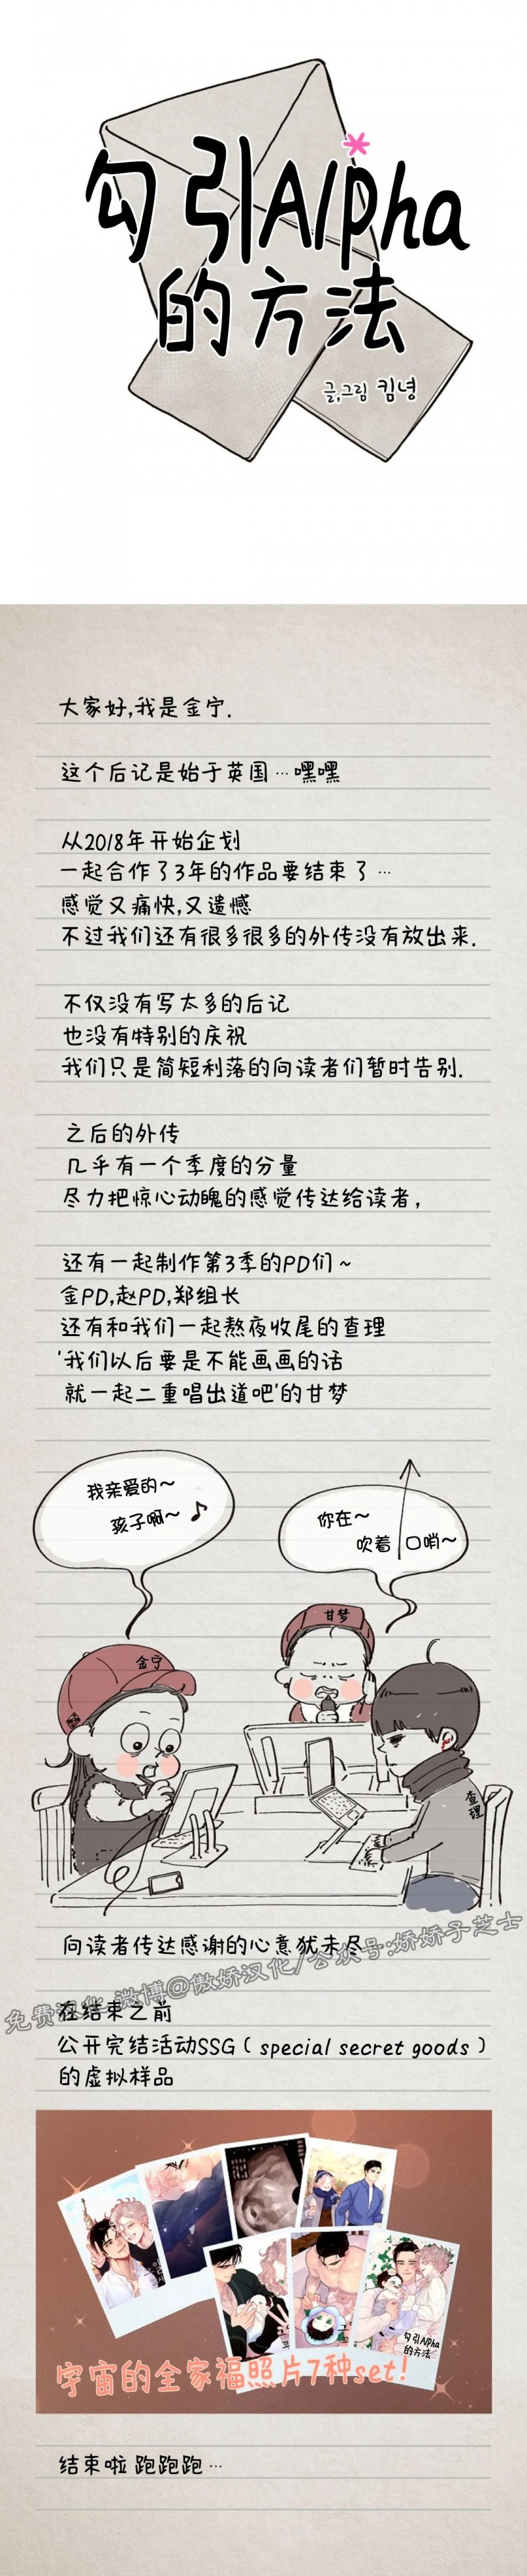 勾引Alpha
的方法
글,그림 킴녕
大家好,我是金宁.
这个后记是始于英国…嘿嘿
从2018年开始企划
一起合作了3年的作品要结束了…
感觉又痛快,又遗憾
不过我们还有很多很多的外传没有放出来.
不仅没有写太多的后记
也没有特别的庆祝
我们只是简短利落的向读者们暂时告别.
之后的外传
几乎有一个季度的分量
尽力把惊心动魄的感觉传达给读者，
还有一起制作第3季的PD们~
金PD,赵PD,郑组长
还有和我们一起熬夜收尾的查理
'我们以后要是不能画画的话
就一起二重唱出道吧'的甘梦
我亲爱的~
孩子啊~♪
你在~
吹着 口哨~
甘梦
金宁
查理
向读者传达感谢的心意犹未尽
免费汉化 微博@傲娇汉化/公众号:娇娇子芝士
在结束之前
公开完结活动SSG（special secret goods）
的虚拟样品
勾引Alpha
的方法
宇宙的全家福照片7种set!
结束啦 跑跑跑…